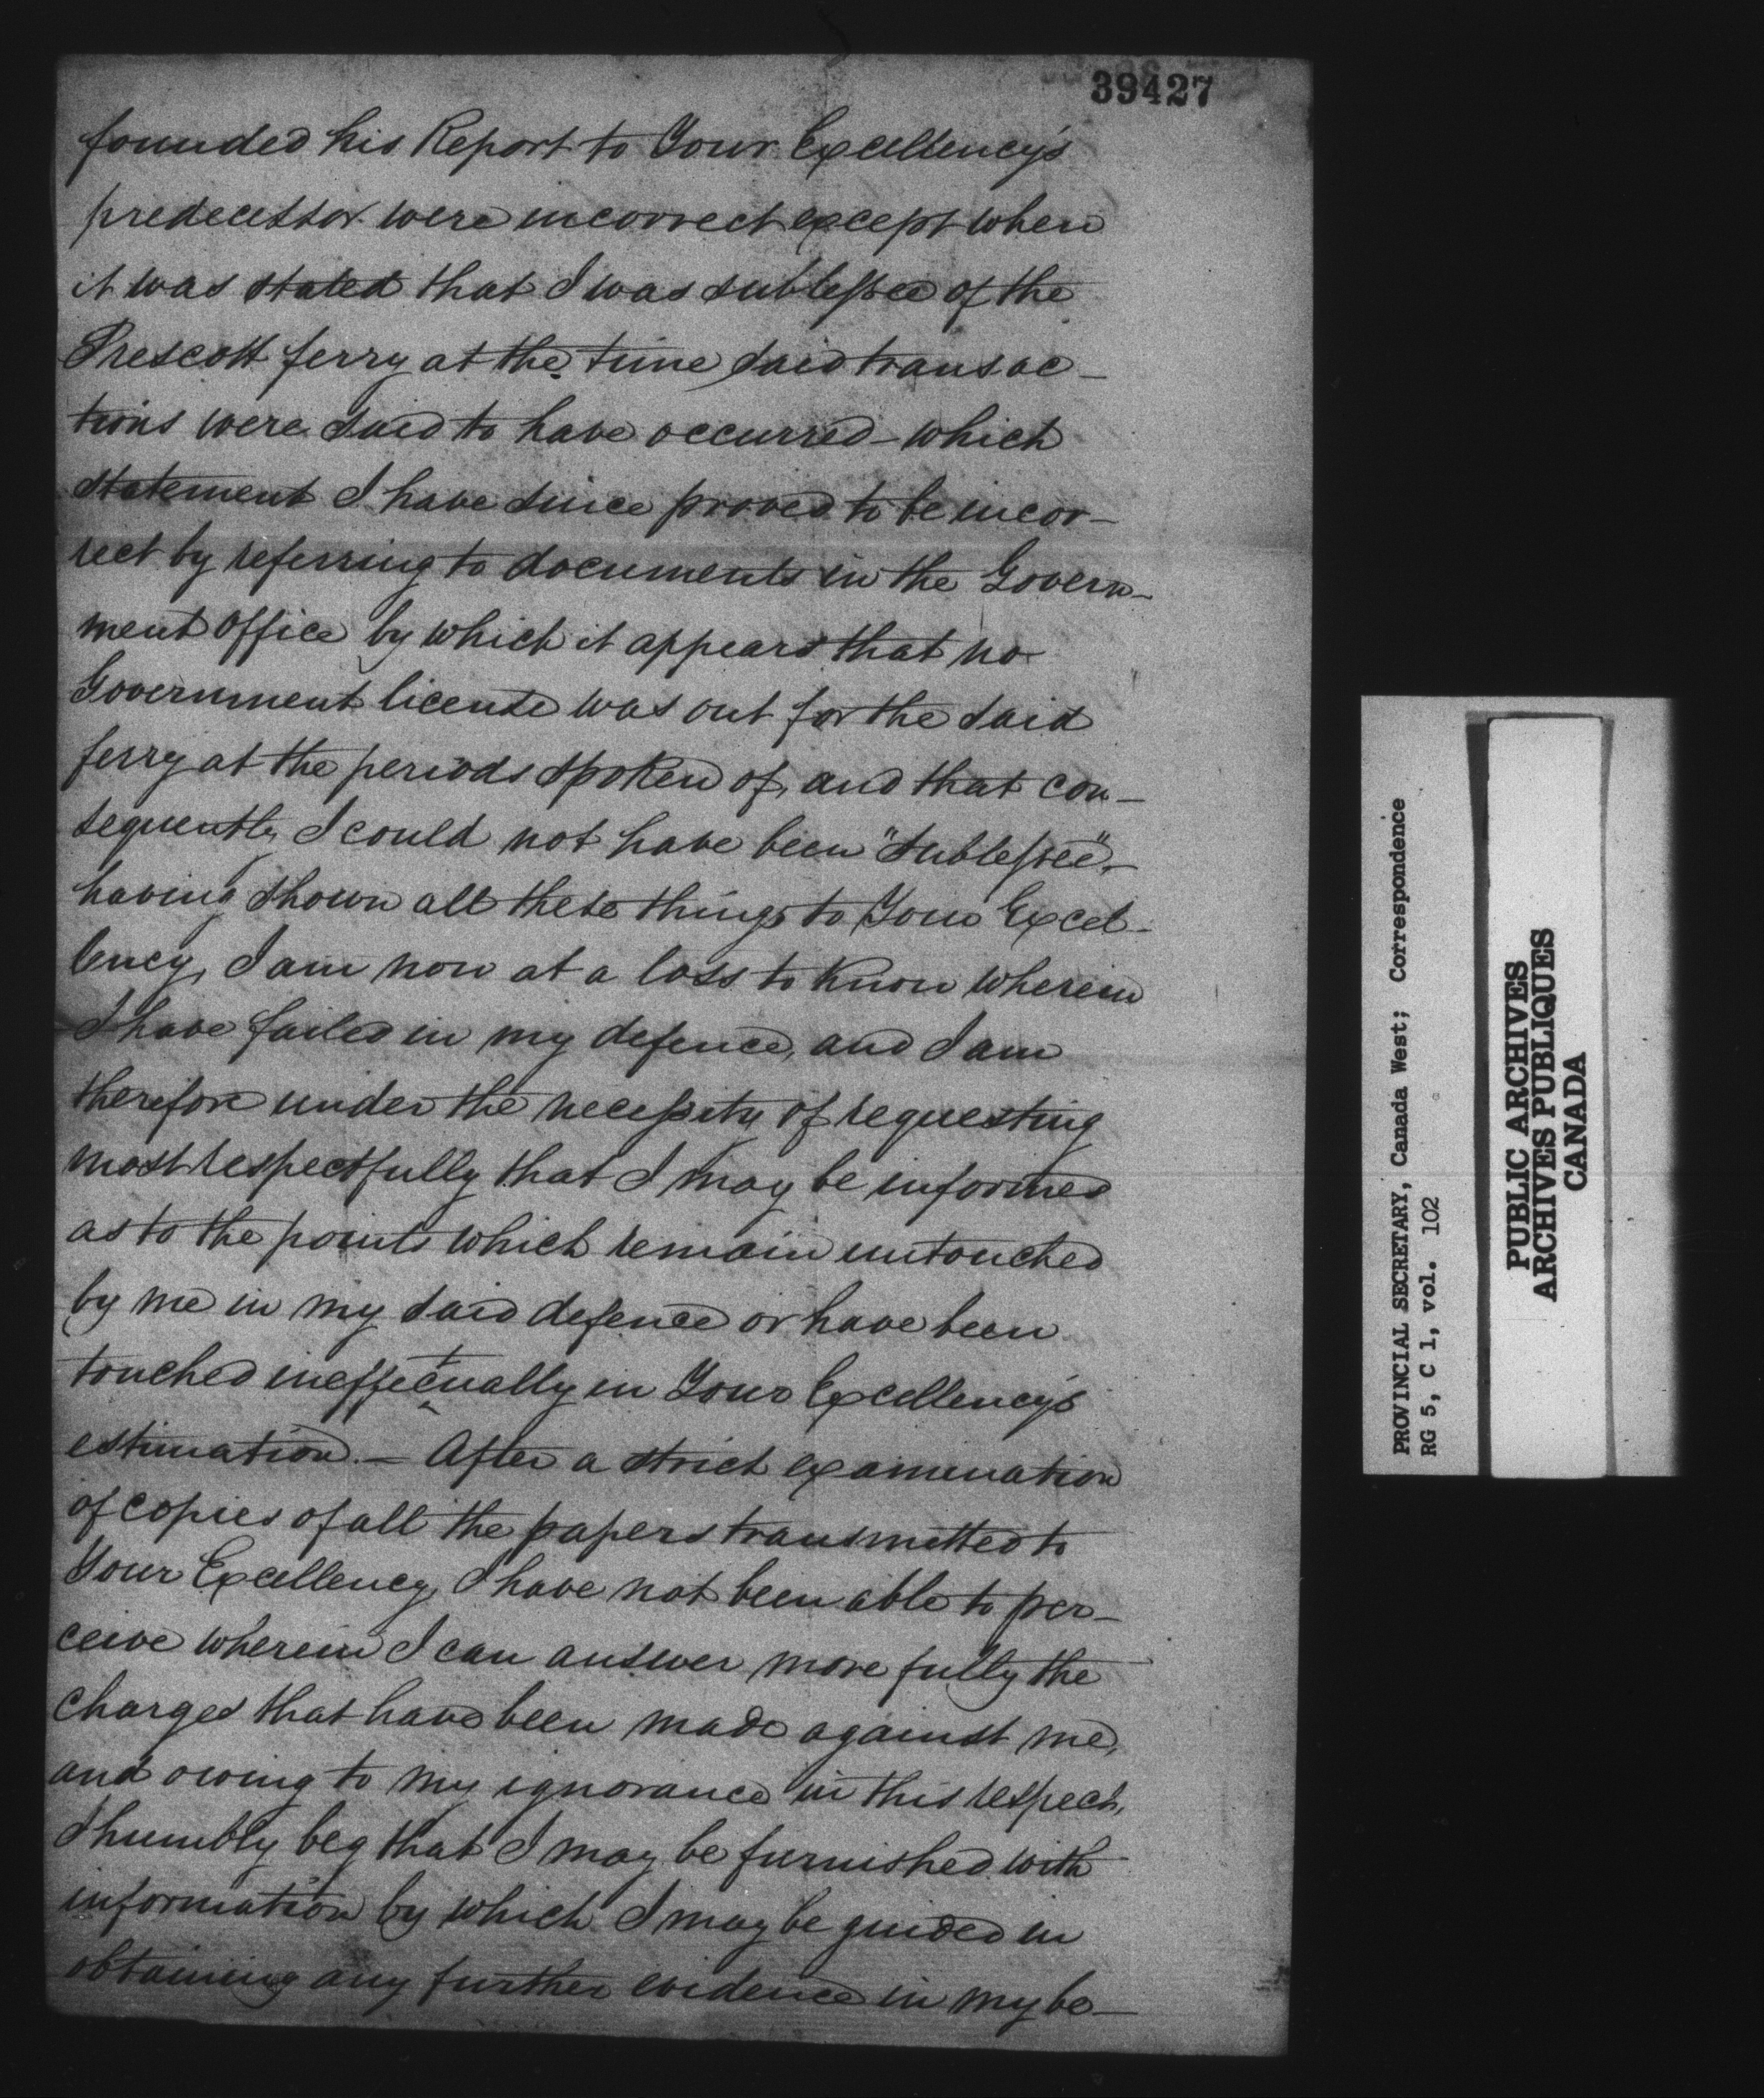 39427
founded his Report to Your Excellency's
predecessor were incorrect except when
it was stated that I was sublessee of the
Prescott ferry at the time said transac-
tions were said to have occurred - which
statement I have since proved to be incor-
rect by referring to documents in the Govern-
ment office by which it appears that no
Government license was out for the said
ferry at the periods spoken of, and that con-
sequently I could not have been "sublessee",-
having shown all these things to Your Excel-
lency, I am now at a loss to know wherein
I have failed in my defence, and I am
therefore under the necessity of requesting
most respectfully that I may be informed
as to the points which remain untouched
by me in my said defence or have been
touched ineffectually in Your Excellency's
estimation. - After a strict examination
of copies of all the papers transmitted to
Your Excellency, I have not been able to per-
ceive wherein I can answer more fully the
charges that have been made against me,
and owing to my ignorance in this respect,
I humbly beg that I may be furnished with
information by which I may be guided in
obtaining any further evidence in my be-
PROVINCIAL SECRETARY, Canada West; Correspondence
RG 5, C 1, vol. 102
PUBLIC ARCHIVES
ARCHIVES PUBLIQUES
CANADA